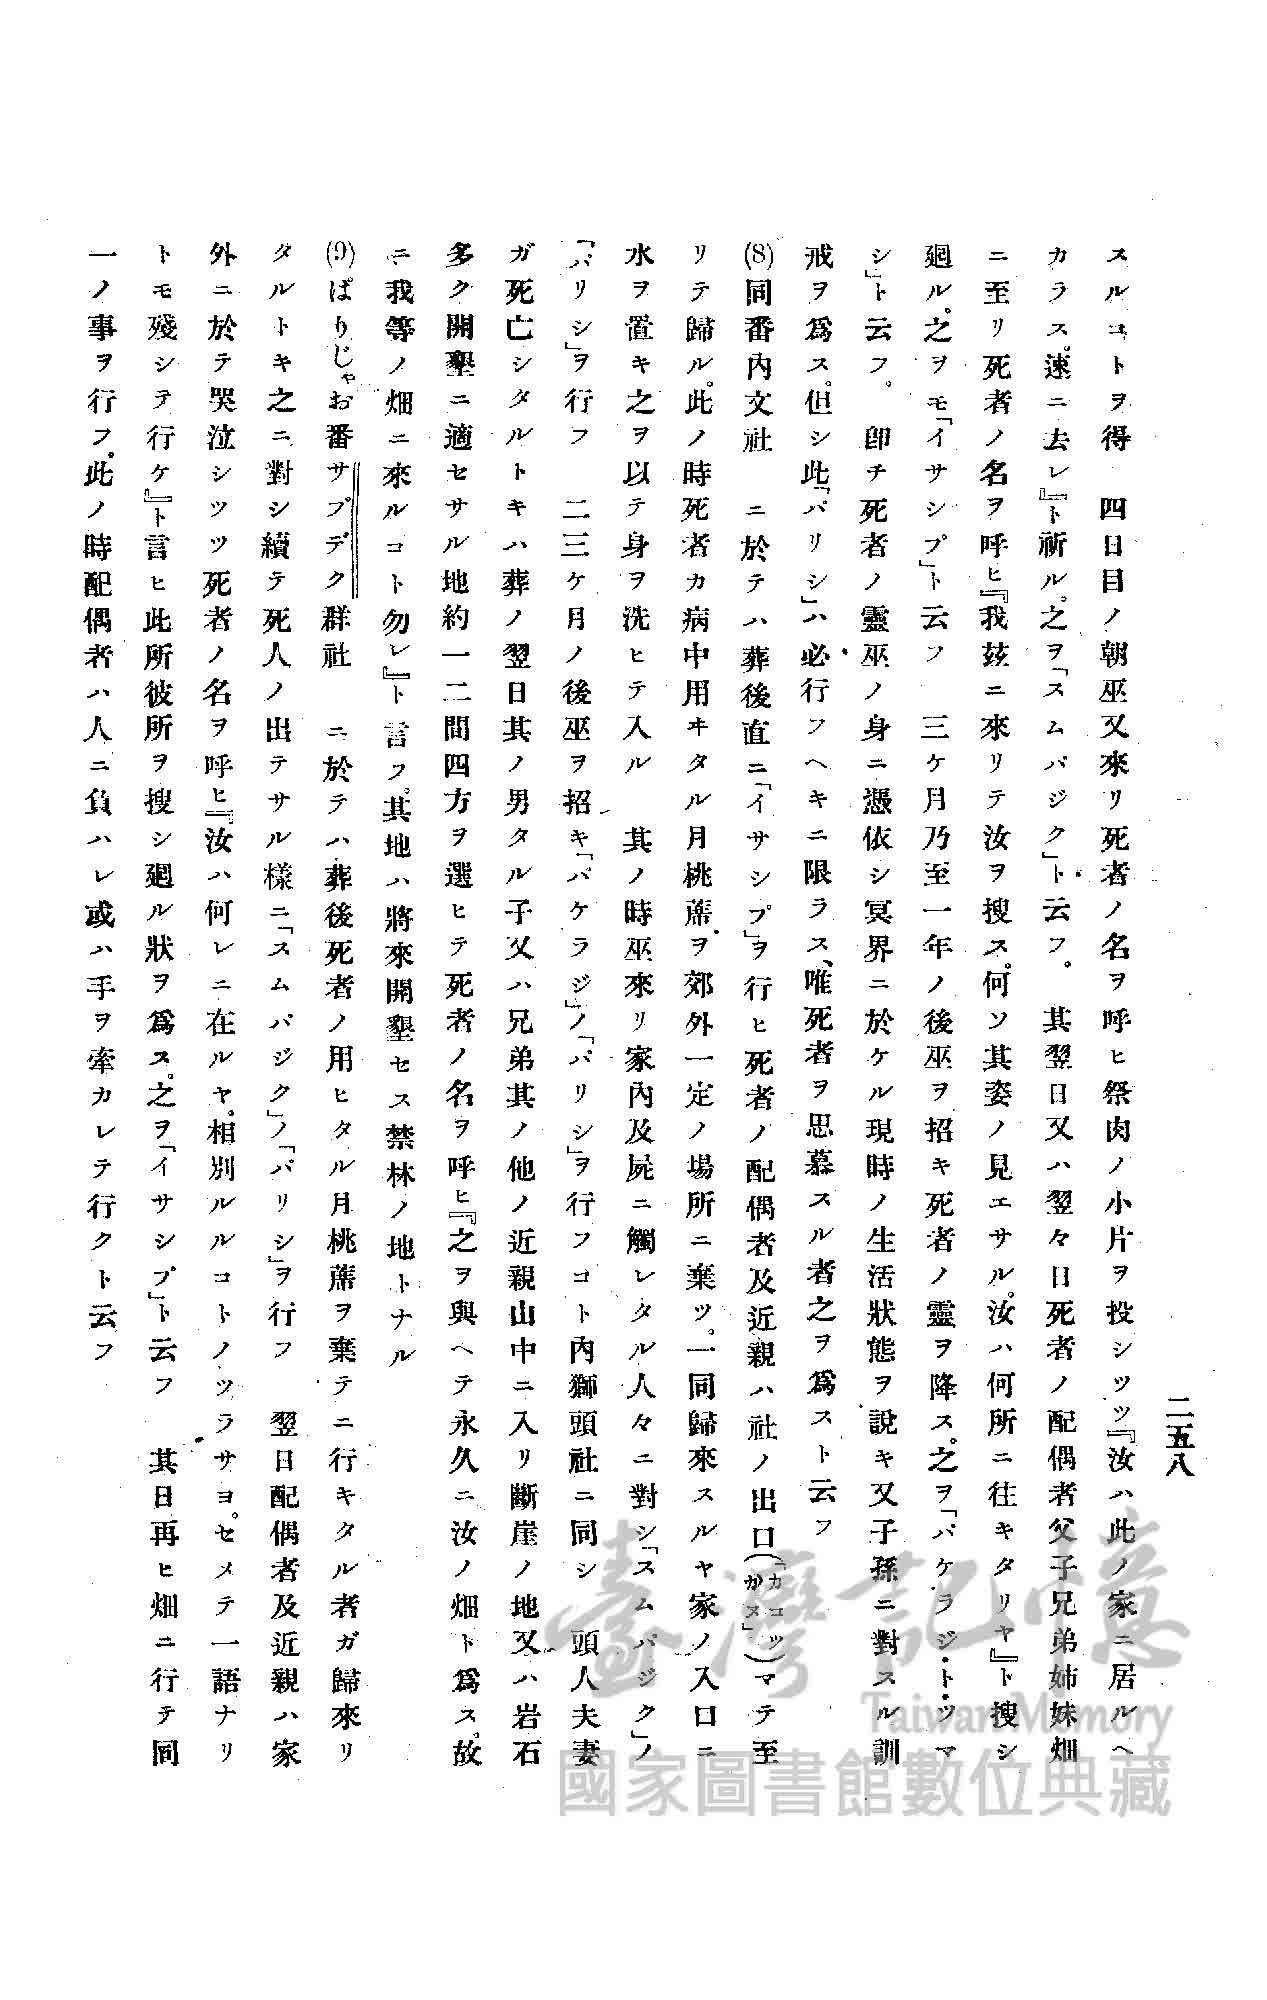 二五八
スルコトヲ得　四日目ノ朝巫又來リ死者ノ名ヲ呼ヒ祭肉ノ小片ヲ投シツツ『汝ハ此ノ家ニ居ルヘ
カラス。速ニ去レ』ト祈ル。之ヲ「スムパジク」ト云フ。　其翌日又ハ翌々日死者ノ配偶者父子兄弟姉妹畑
ニ至リ死者ノ名ヲ呼ヒ『我玆ニ來リテ汝ヲ搜ス。何ソ其姿ノ見エサル。汝ハ何所ニ往キタリヤ』ト搜シ
廻ル。之ヲモ「イサシプ」ト云フ　三ケ月乃至一年ノ後巫ヲ招キ死者ノ靈ヲ降ス。之ヲ「パケラジ・ト・ツマ
シ」ト云フ。　卽チ死者ノ靈巫ノ身ニ憑依シ冥界ニ於ケル現時ノ生活狀態ヲ說キ又子孫ニ對スル訓
戒ヲ爲ス。但シ此「パリシ」ハ必行フヘキニ限ラス、唯死者ヲ思慕スル者之ヲ爲スト云フ
(8)同番內文社　ニ於テハ葬後直ニ「イサシプ」ヲ行ヒ死者ノ配偶者及近親ハ社ノ出口(「カコツカヌ」)マテ至
リテ歸ル。此ノ時死者カ病中用ヰタル月桃蓆ヲ郊外一定ノ場所ニ棄ツ。一同歸來スルヤ家ノ入口ニ
水ヲ置キ之ヲ以テ身ヲ洗ヒテ入ル　其ノ時巫來リ家內及屍ニ觸レタル人々ニ對シ「スムパジク」ノ
「パリシ」ヲ行フ　二三ケ月ノ後巫ヲ招キ「パケラジ」ノ「パリシ」ヲ行フコト內獅頭社ニ同シ　頭人夫妻
ガ死亡シタルトキハ葬ノ翌日其ノ男タル子又ハ兄弟其ノ他ノ近親山中ニ入リ斷崖ノ地又ハ岩石
多ク開墾ニ適セサル地約一二間四方ヲ選ヒテ死者ノ名ヲ呼ヒ『之ヲ與ヘテ永久ニ汝ノ畑ト爲ス。故
ニ我等ノ畑ニ來ルコト勿レ』ト言フ。其地ハ將來開墾セス禁林ノ地トナル
(9)ぱりじゃお番サプデク群社　ニ於テハ葬後死者ノ用ヒタル月桃蓆ヲ棄テニ行キタル者ガ歸來リ
タルトキ之ニ對シ續テ死人ノ出テサル樣ニ「スムパジク」ノ「パリシ」ヲ行フ　翌日配偶者及近親ハ家
外ニ於テ哭泣シツツ死者ノ名ヲ呼ヒ『汝ハ何レニ在ルヤ。相別ルルコトノツラサヨ。セメテ一語ナリ
トモ殘シテ行ケ』ト言ヒ此所彼所ヲ搜シ廻ル狀ヲ爲ス。之ヲ「イサシプ」ト云フ　其日再ヒ畑ニ行テ同
一ノ事ヲ行フ。此ノ時配偶者ハ人ニ負ハレ或ハ手ヲ牽カレテ行クト云フ
臺灣記憶
Taiwan Memory
國家圖書館數位典藏